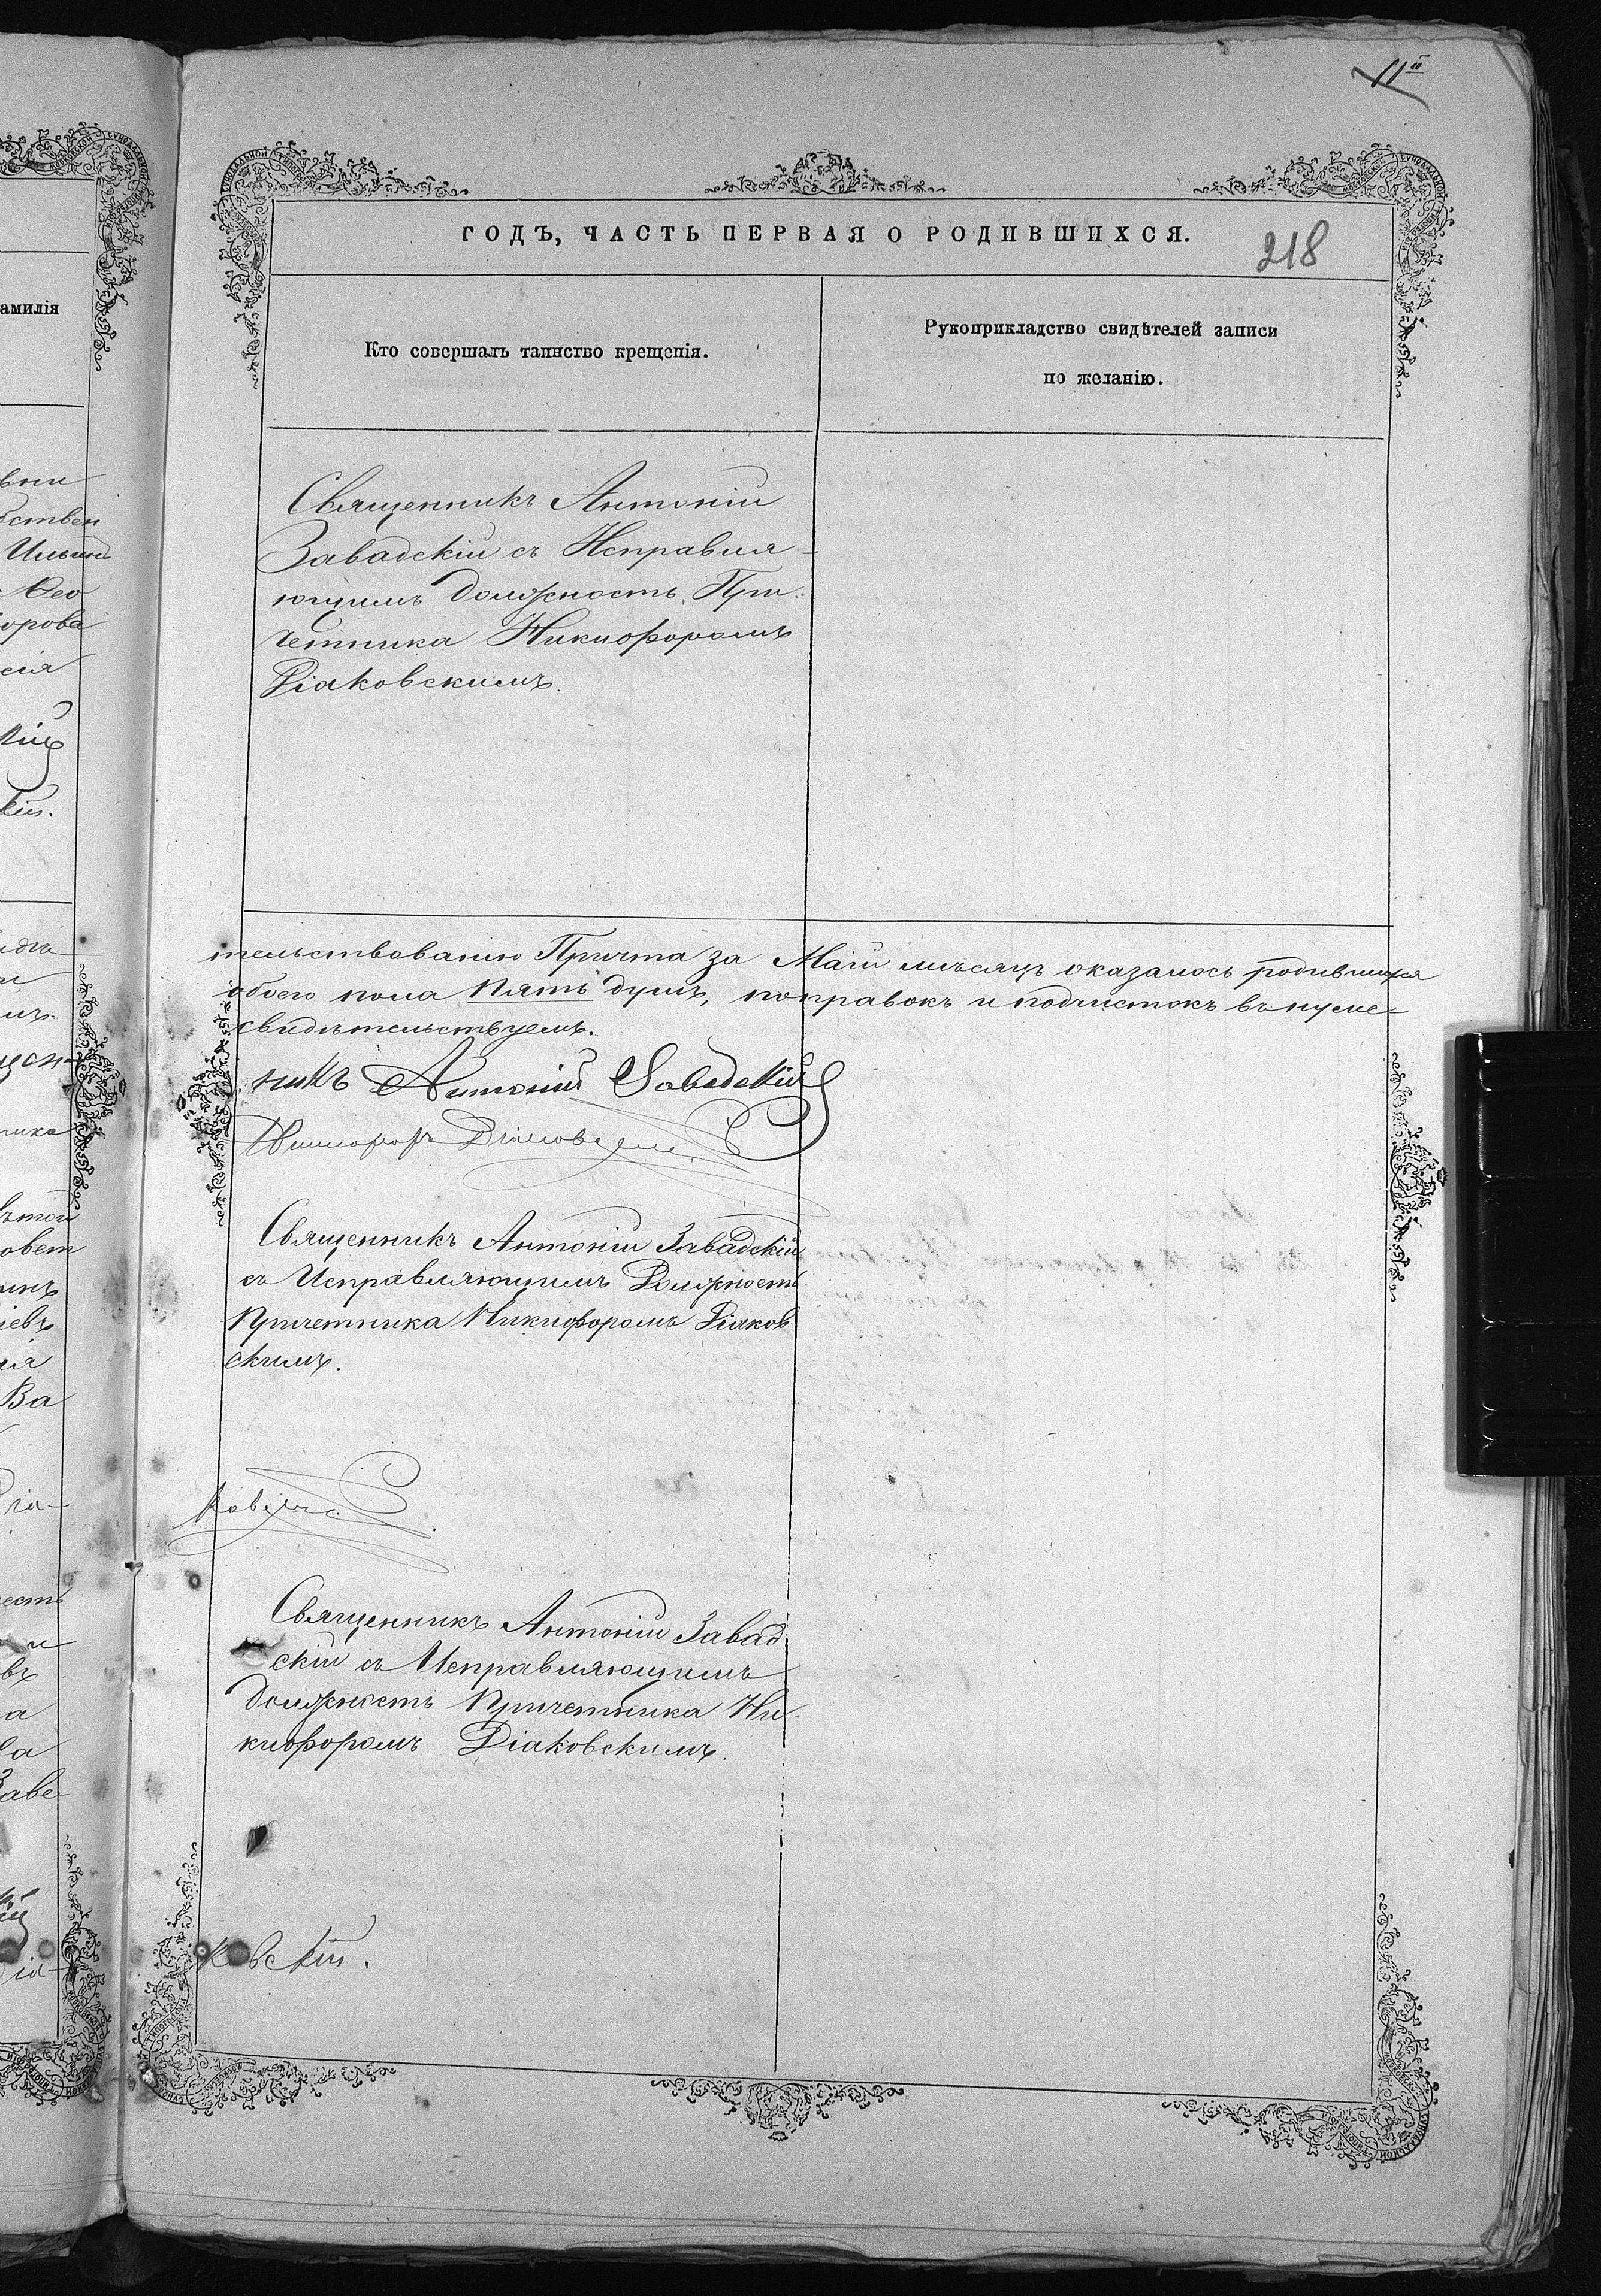 11й
ГОДЪ, ЧАСТЬ ПЕРВАЯ О РОДИВШИХСЯ.
218
Кто совершалъ таинство крещенія.
Рукоприкладство свидѣтелей записи
по желанію.
Священникъ Антоній
Завадскій съ Исправля-
ющимъ должность При-
четника Никифоромъ
Діаковскимъ.
тельствованію Причта за Май мѣсяцъ оказалось родившихся
обоего пола пять душъ, поправокъ и подчистокъ въ нуме-
свидѣтельствуемъ.
никъ Антоній Завадскій
Никифоръ Діаковскій
Священникъ Антоній Завадскій
съ Исправляющимъ Должность
Причетника Никифоромъ Діаков
скимъ.
ковскій.
Священникъ Антоній Завад
скій съ Исправляющимъ
должность Причетника Ни-
кифоромъ Діаковскимъ.
ковскій.
амилія
ствен
Ѳео
орова
сія
кій
кій.
щен-
ника
овет
іевъ
Ва
ра-
есть
въ
а
аве-